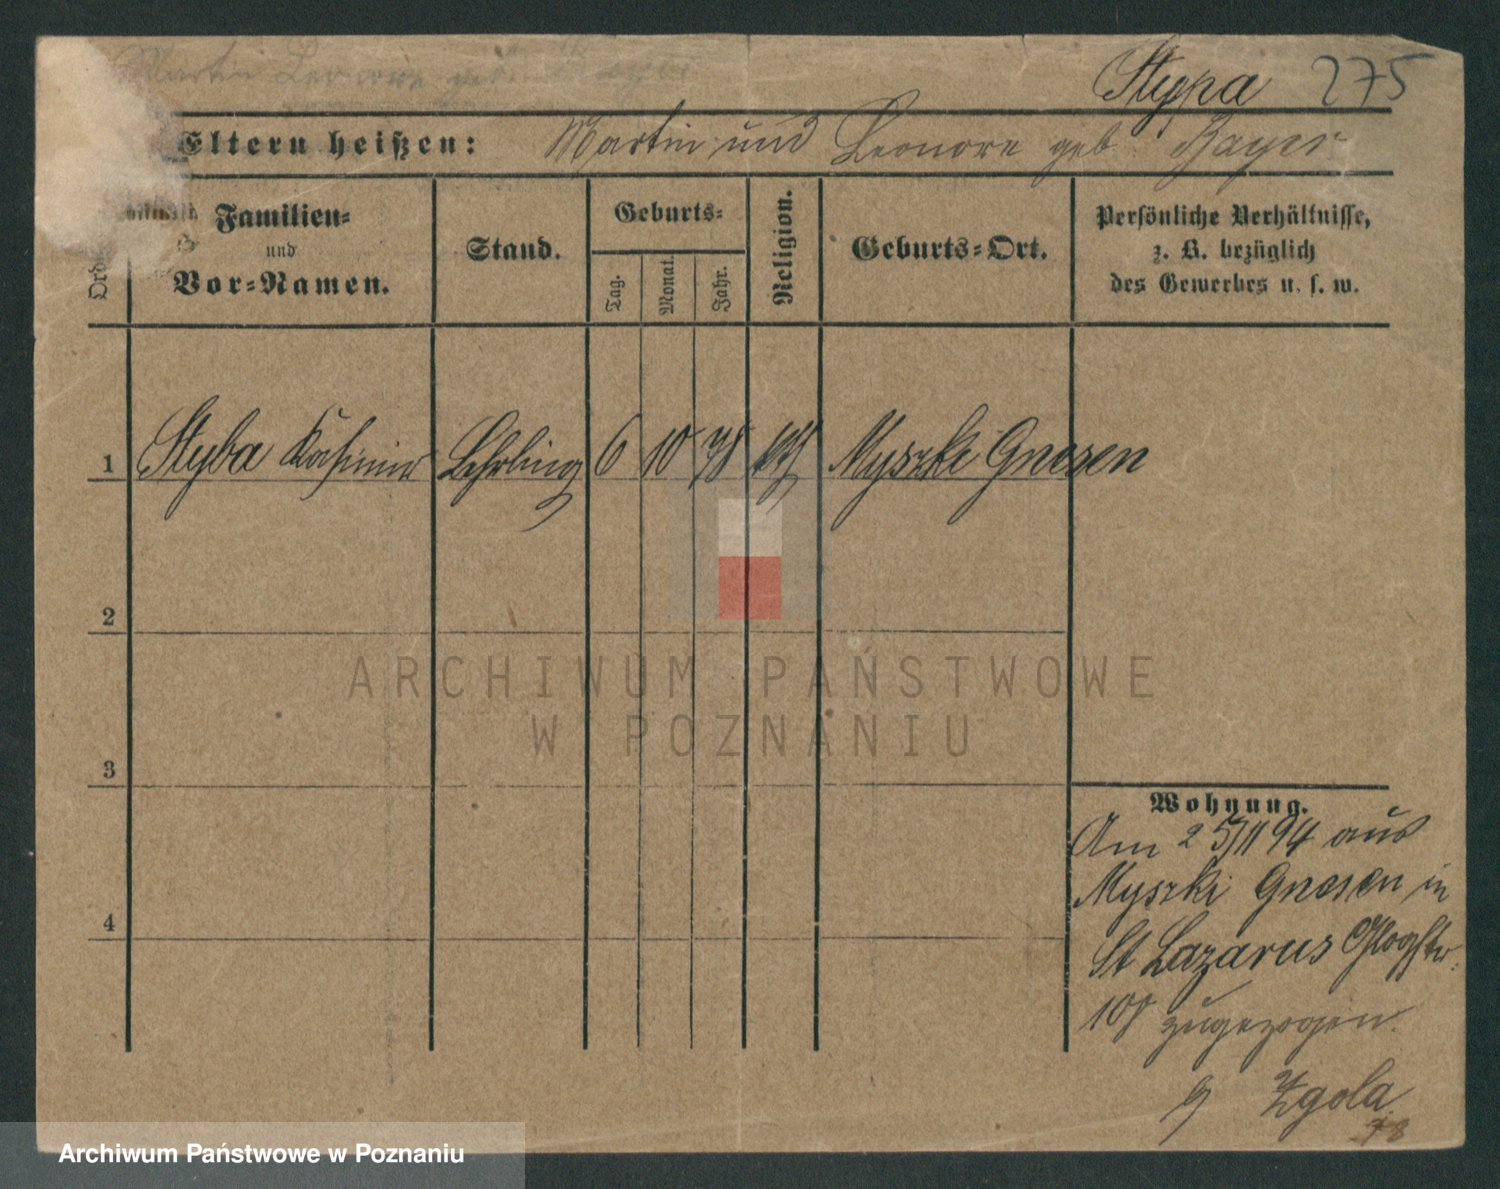 Martin Leonore geb. Bayer
Stypa 275
Eltern heißen: Martin und Leonore geb. Bayer
Familien=
und
Vor=Namen.
Stand.
Geburts=
Tag.
Monat.
Jahr.
Religion.
Geburts=Ort.
Persönliche Verhältnisse,
z. B. bezüglich
des Gewerbes u. s. w.
1 Styba Kasimir Lehrling 6 10 78 kth Myszki Gnesen
2
3
4
Wohnung.
Am 25/11 94 aus
Myszki Gnesen in
St Lazarus Glogstr.
108 zugezogen.
Zgola
78
ARCHIWUM PAŃSTWOWE
W POZNANIU
Archiwum Państwowe w Poznaniu